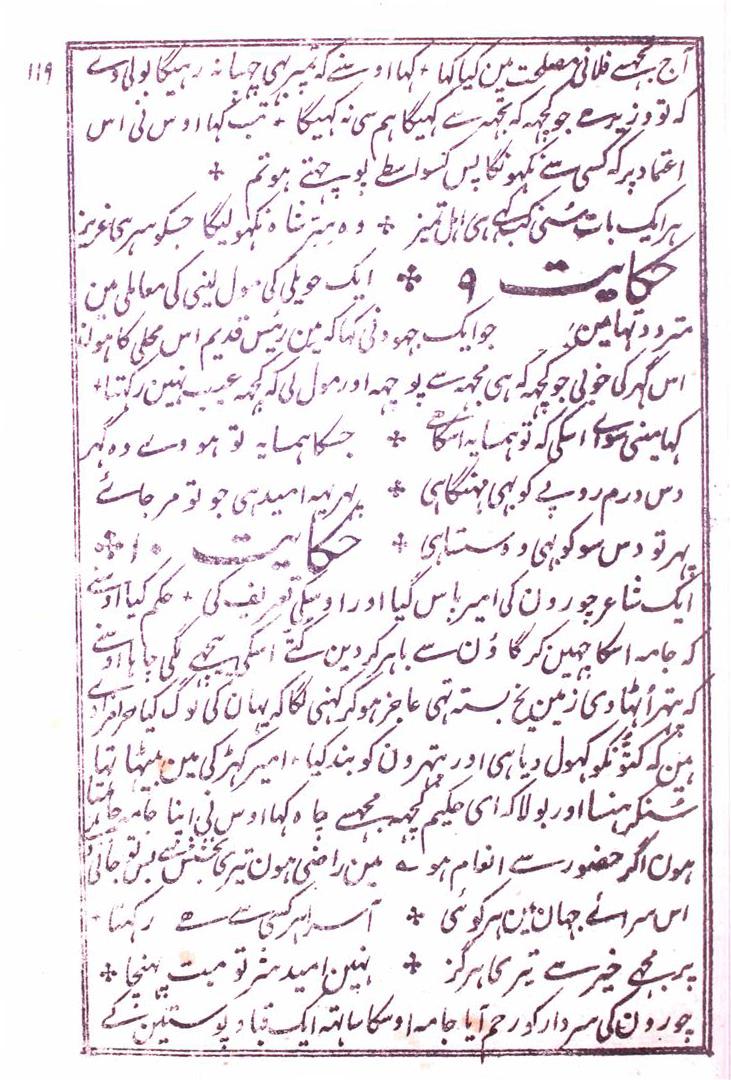 ۱۱۹
آج تجھسے فلانی مصلحت مین کیا کہا + کہا اوسنے کہ تمپر بہی چہپا نہ رہیگا بولی وے
کہ تو وزیر ہے جو کچہہ کہ تجہہ سے کہیگا ہم سی نہ کہیگا + تب کہا اوس نی اس
اعتماد پر کہ کسی سے نکہونگا پس کسواسطے پوچہتے ہو تم +
ہر ایک بات سُنی کب کہے ہی اہل تمیز + وہ سِرِ شاہ نکہولیگا جسکو سر ہی عزیز
حکایت ۹ + ایک حویلی کی مول لینی کی معاملی مین
متردد تہا مین جو ایک جہود نی کہا کہ مین رئیس قدیم اس محلی کا ہون
اس گہر کی خوبی جو کچہہ کہ ہی مجہہ سے پوچہہ اور مول لی کہ کچہہ عیب نہین رکہتا +
کہا مینی سوای اسکی کہ تو ہمسایہ اسکا ہے + جسکا ہمسایہ تو ہووے وہ گہر
دس درم روپے کو بہی مہنگا ہی + پہر یہہ امید ہی جو تو مر جائے
پہر تو دس سو کو بہی وہ سستا ہی + حکایت ۱۰ +
ایک شاعر چورون کی امیر پاس گیا اور اوسکی تعریف کی + حکم کیا اوسنے
کہ جامہ اسکا چہین کر گاوُن سے باہر کر دین کتّے اسکی پیچہے لگی چاہا اوسنے
کہ پتہر اُٹہا وی زمین یخ بستہ تہی عاجز ہو کر کہنی لگا کہ یہان کی لوگ کیا حرامزادے
ہین کہ کتّونکو کہول دیا ہی اور پتہرون کو بند کیا + امیر کہڑکی مین بیٹہا تہا
سُنکر ہنسا اور بولا کہ ای حکیم کچہہ مجہسے چاہ کہا اوس نی اپنا جامہ چاہتا
ہون اگر حضور سے انعام ہو + مین راضی ہون تیری بخشش سے بس تو جانی
اس سرائے جہان مین ہر کوئی + آسرا ہر کسی سے ہے رکہتا +
پر مجہے خیر سے تیری ہرگز + نہین امید شر تو مت پہنچا +
چورون کی سردار کو رحم آیا جامہ اوسکا ساتہہ ایک قبا و پوستین کے